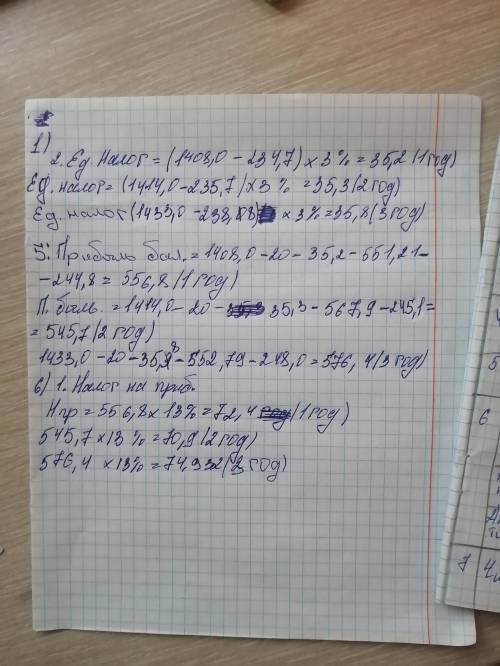 1)
2. Ед. Налог = (1408,0 - 234,7) × 3% = 35,2 (1 год)
Ед. налог = (1414,0 - 235,7) × 3% = 35,3 (2 год)
Ед. налог (1433,0 - 238,8) × 3% = 35,8 (3 год)
5. Прибыль бал. = 1408,0 - 20 - 35,2 - 551,21 -
- 244,8 = 556,8 (1 год)
П. баль. = 1414,0 - 20 - 35,3 - 567,9 - 245,1 =
= 545,7 (2 год)
1433,0 - 20 - 35,8 - 552,79 - 248,0 = 576,4 (3 год)
6) 1. Налог на приб.
Нпр = 556,8 × 13% = 72,4 (1 год)
545,7 × 13% = 70,9 (2 год)
576,4 × 13% = 74,932 (3 год)
5
6
7